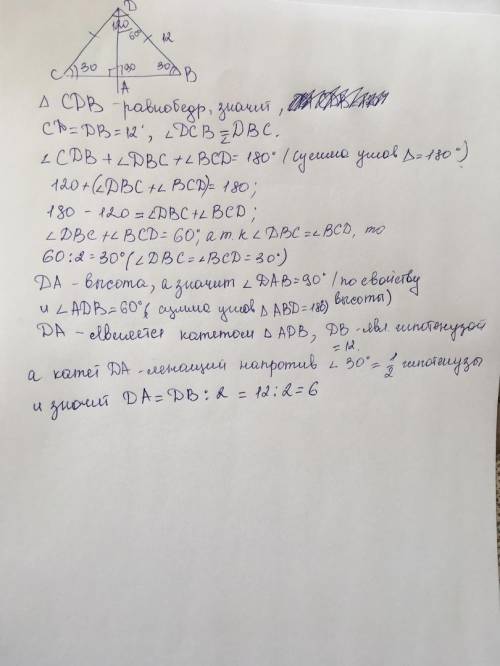 D
120
60°
12
C
30
90
30
B
A
Δ CDB - равнобедр, значит,
CD=DB=12, ∠DCB = ∠DBC.
∠CDB + ∠DBC + ∠BCD = 180° (сумма углов Δ=180°)
120+(∠DBC + ∠BCD)= 180;
180 - 120 = ∠DBC + ∠BCD;
∠DBC + ∠BCD = 60°, а т.к ∠DBC = ∠BCD, то
60:2 = 30° (∠DBC = ∠BCD = 30°)
DA - высота, а значит ∠DAB = 90° (по свойству высоты)
и ∠ADB=60°, сумма углов ΔABD=180)
DA - является катетом ΔADB, DB - явл. гипотенузой = 12.
а катет DA - лежащий напротив ∠30° = 1/2 гипотенузы
и значит DA = DB : 2 = 12 : 2 = 6